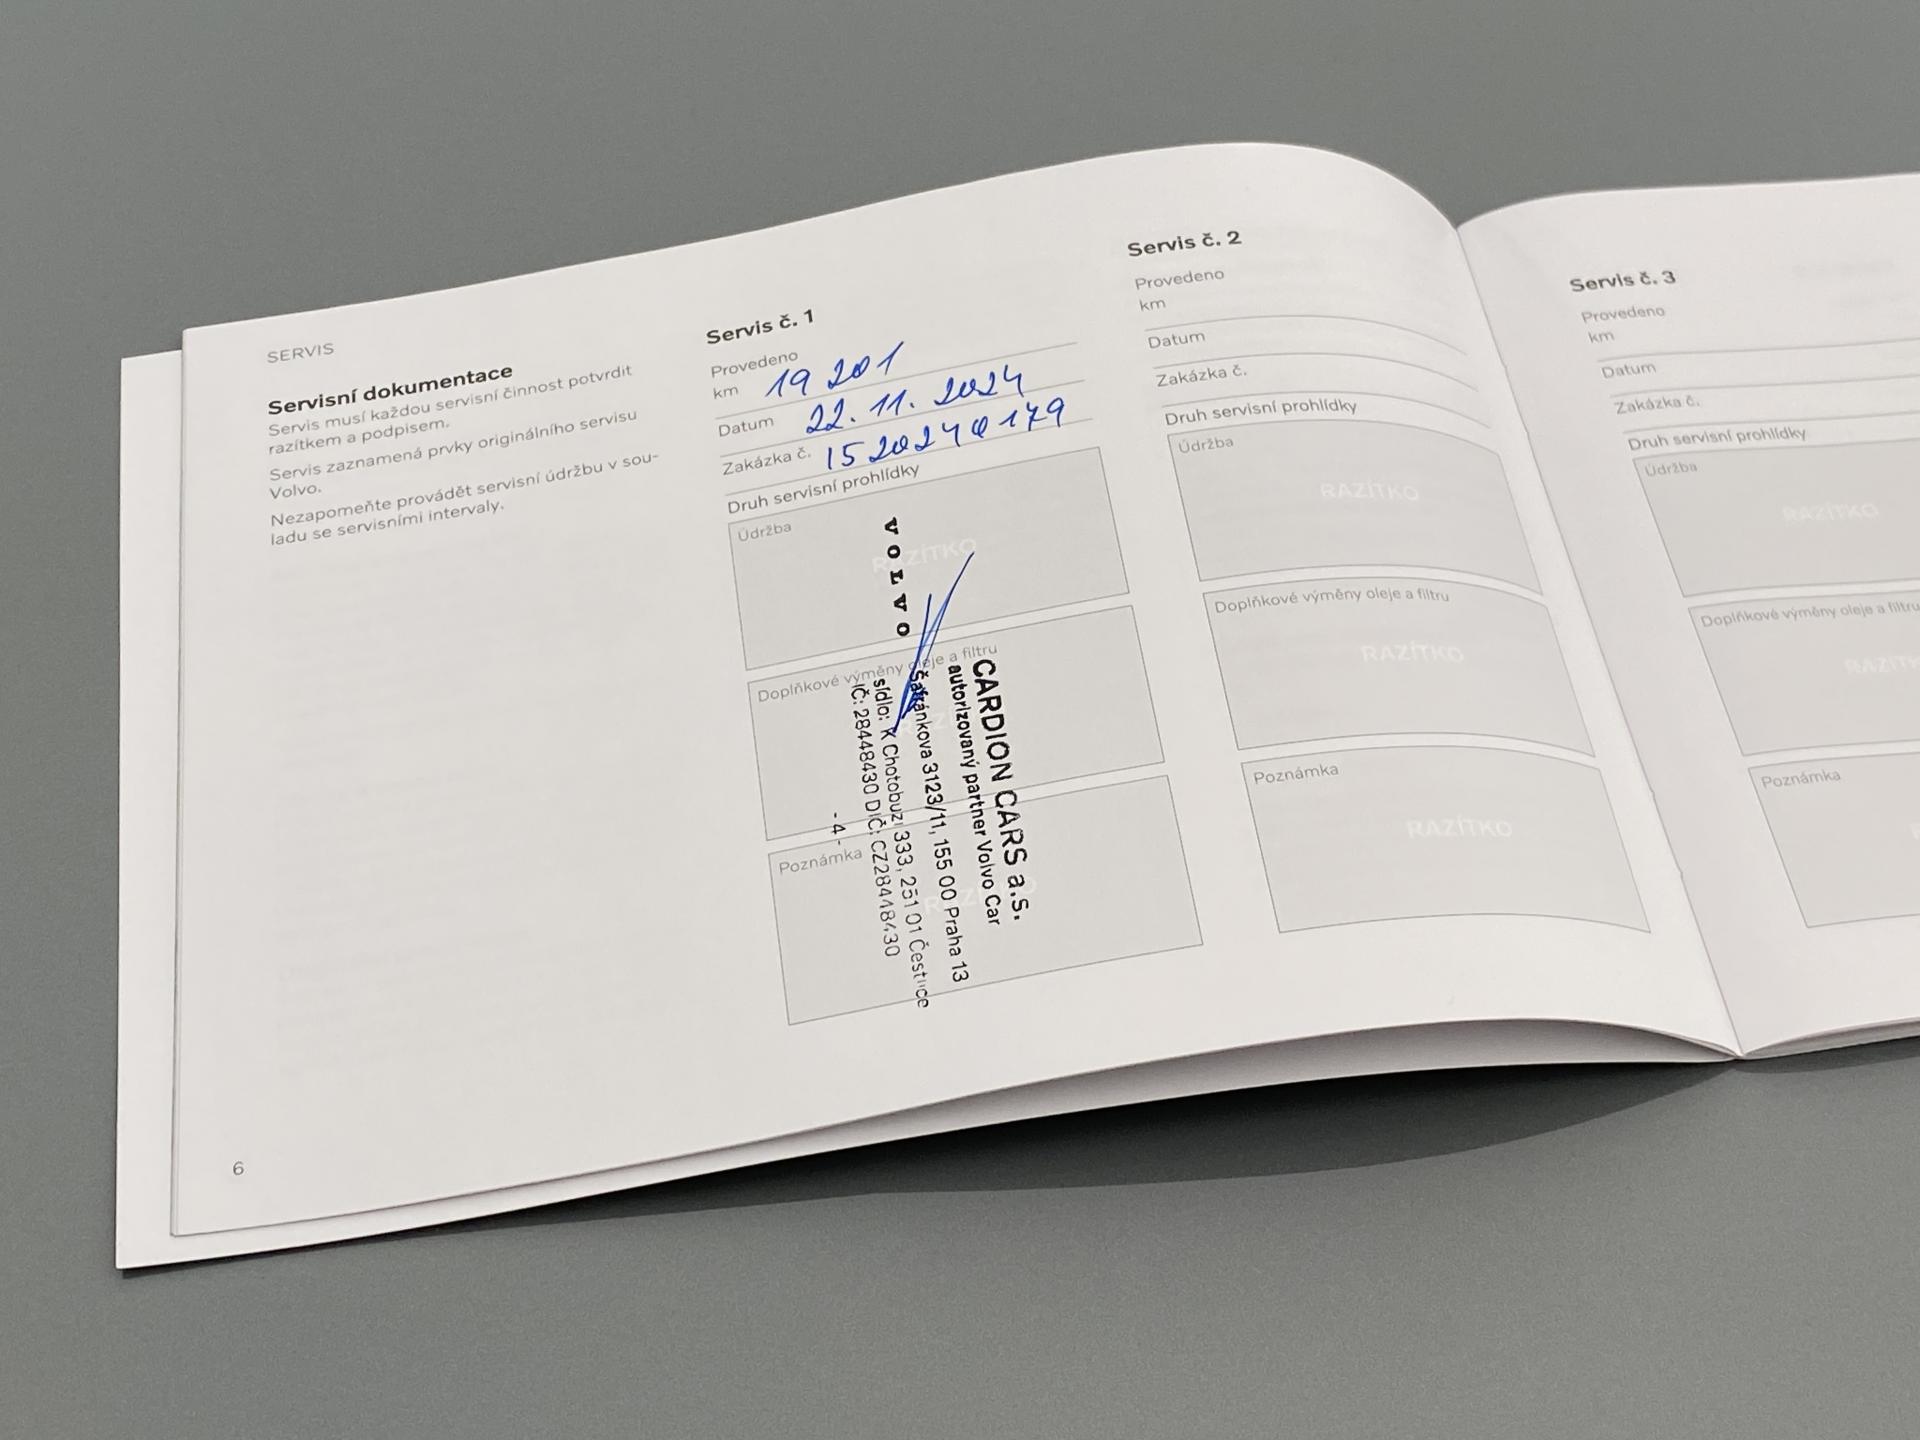 SERVIS
Servisní dokumentace
Servis musí každou servisní činnost potvrdit
razítkem a podpisem.
Servis zaznamená prvky originálního servisu
Volvo.
Nezapomeňte provádět servisní údržbu v sou-
ladu se servisními intervaly.
6
Servis č. 1
Provedeno
km 19 201
Datum 22. 11. 2024
Zakázka č. 1520240179
Druh servisní prohlídky
Údržba
RAZÍTKO
Doplňkové výměny oleje a filtru
Poznámka
VOLVO
CARDION CARS a.s.
autorizovaný partner Volvo Car
Šafránkova 3123/11, 155 00 Praha 13
sídlo: K Chotobuzi 333, 251 01 Čestlice
IČ: 28448430 DIČ: CZ28448430
- 4 -
Servis č. 2
Provedeno
km
Datum
Zakázka č.
Druh servisní prohlídky
Údržba
RAZÍTKO
Doplňkové výměny oleje a filtru
RAZÍTKO
Poznámka
RAZÍTKO
Servis č. 3
Provedeno
km
Datum
Zakázka č.
Druh servisní prohlídky
Údržba
RAZÍTKO
Doplňkové výměny oleje a filtru
Poznámka